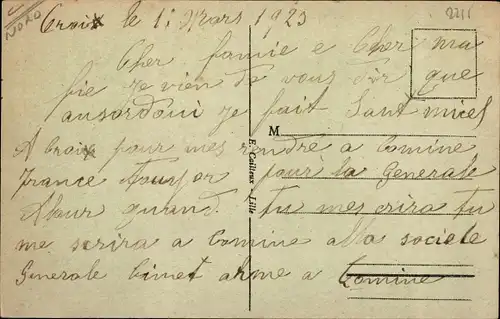 NORD
2211
Croix le 1: Mars 1923
Cher famie e Cher ma
fie Je vien de vous dir que
ausordoui je fait Sant micel
A Croix pour mes rendre a Comine
M
France pour la Generale
Alour quand tu mes crira tu
me scrira a Comine alla societe
Generale cimet a Comine
E. Cailteux - Lille